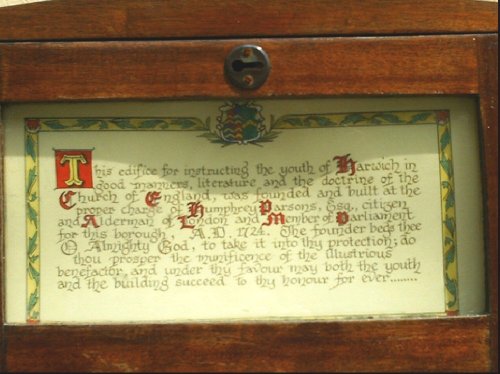 This edifice for instructing the youth of Harwich in
good manners, literature and the doctrine of the
Church of England, was founded and built at the
proper charge of Humphrey Parsons, Esq., citizen
and Alderman of London and Member of Parliament
for this borough, A.D. 1724. The founder begs thee
O Almighty God, to take it into thy protection; do
thou prosper the munificence of the illustrious
benefactor, and under thy favour may both the youth
and the building succeed to thy honour for ever........